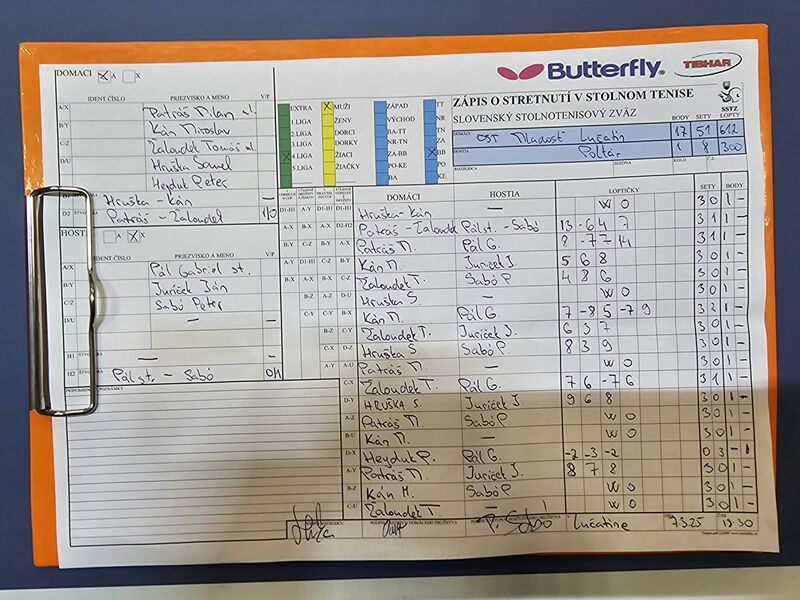 DOMACI A X
Butterfly TIBHAR
IDENT ČÍSLO PRIEZVISKO A MENO V/P
A/X Patráš Milan
B/Y Kán Miroslav
C/Z Žaloudek Tomáš
D/U Hruška Samel
Heyduk Peter
D1-H1 Hruška - Kán —
D2 Patráš - Žaloudek 1/0
HOSTIA A X
IDENT ČÍSLO PRIEZVISKO A MENO V/P
A/X Pál Gabriel st.
B/Y Juríček Ján
C/Z Sabó Peter
D/U —
H1 —
H2 Pál st. - Sabó 0/1
EXTRA MUŽI ZÁPAD TT
1.LIGA ŽENY VÝCHOD NR
2.LIGA DORCI BA-TT TN
3.LIGA DORKY NR-TN ZA
4.LIGA ŽIACI ZA-BB BB
5.LIGA ŽIAČKY PO-KE PO
BA KE
ZÁPIS O STRETNUTÍ V STOLNOM TENISE
SLOVENSKÝ STOLNOTENISOVÝ ZVÄZ
SSTZ
BODY SETY LOPTY
DOMÁCI OST Mladosť Lučatín 17 51 612
HOSTIA Poltár 1 8 300
ROZHODCA SEZÓNA KOLO Č.Z.
DOMÁCI HOSTIA LOPTIČKY SETY BODY
Hruška - Kán — W O 3 0 1 -
Patráš - Žaloudek Pál st. - Sabó 13 -6 4 7 3 1 1 -
Patráš M. Pál G. 8 -7 7 14 3 1 1 -
Kán M. Juríček J. 5 6 8 3 0 1 -
Žaloudek T. Sabó P. 4 8 6 3 0 1 -
Hruška S. — W O 3 0 1 -
Kán M. Pál G. 7 -8 5 -7 9 3 2 1 -
Žaloudek T. Juríček J. 6 3 7 3 0 1 -
Hruška S Sabó P. 8 3 9 3 0 1 -
Patráš M. — W O 3 0 1 -
C-X Žaloudek T. Pál G. 7 6 -7 6 3 1 1 -
D-Y HRUŠKA S. Juríček J. 9 6 8 3 0 1 -
A-Z Patráš M. Sabó P. W O 3 0 1 -
B-U Kán M. — W O 3 0 1 -
D-X Heyduk P. Pál G. -2 -3 -2 0 3 - 1
A-Y Patráš M. Juríček J. 8 7 8 3 0 1 -
B-Z Kán M. Sabó P W O 3 0 1 -
C-U Žaloudek T — W O 3 0 1 -
P. Sabó Lučatine 7.3.25 13.30